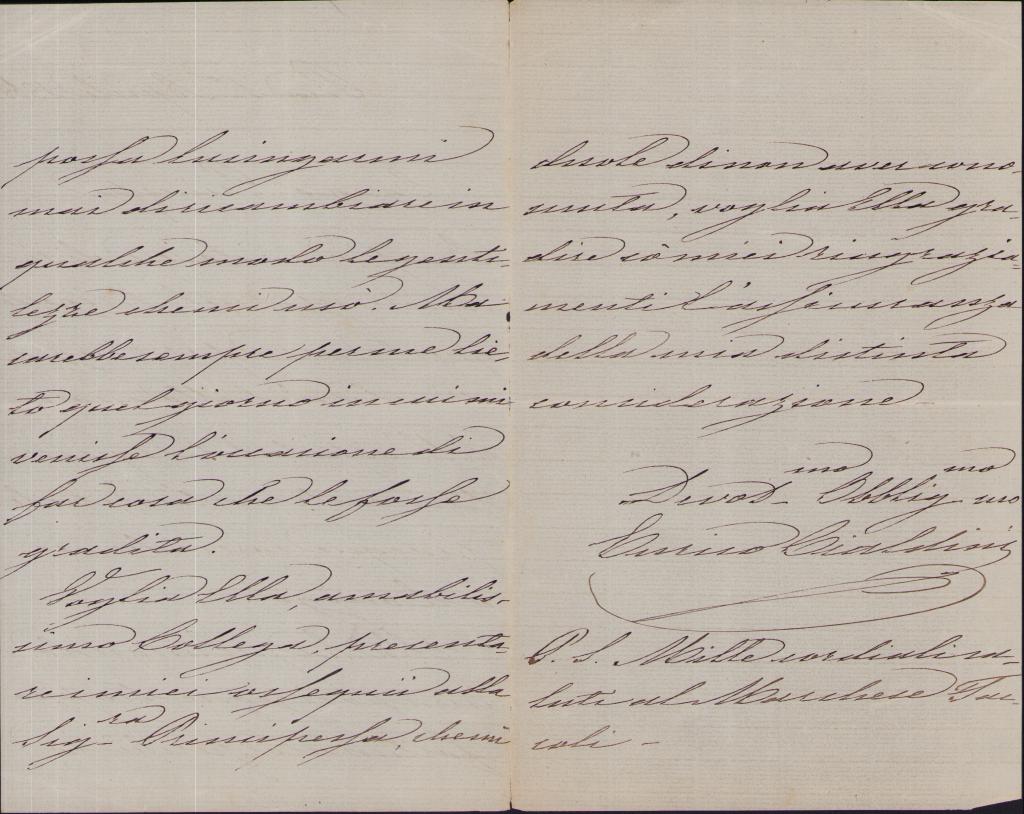 possa lusingarmi
mai di ricambiare in
qualche modo le genti-
lezze che mi usò. Ma
sarebbe sempre per me lie-
to quel giorno in cui mi
venisse l'occasione di
far cosa che le fosse
gradita.
Voglia Ella, amabilis-
simo Collega, presenta-
re i miei ossequii alla
Sig.ra Principessa, che mi
duole di non aver cono-
sciuta, voglia Ella gra-
dire cô miei ringrazia-
menti l'assicuranza
della mia distinta
considerazione
Devot.mo Obblig.mo suo
Enrico Cialdini
P. S. Mille cordiali sa-
luti al Marchese Tac-
coli -